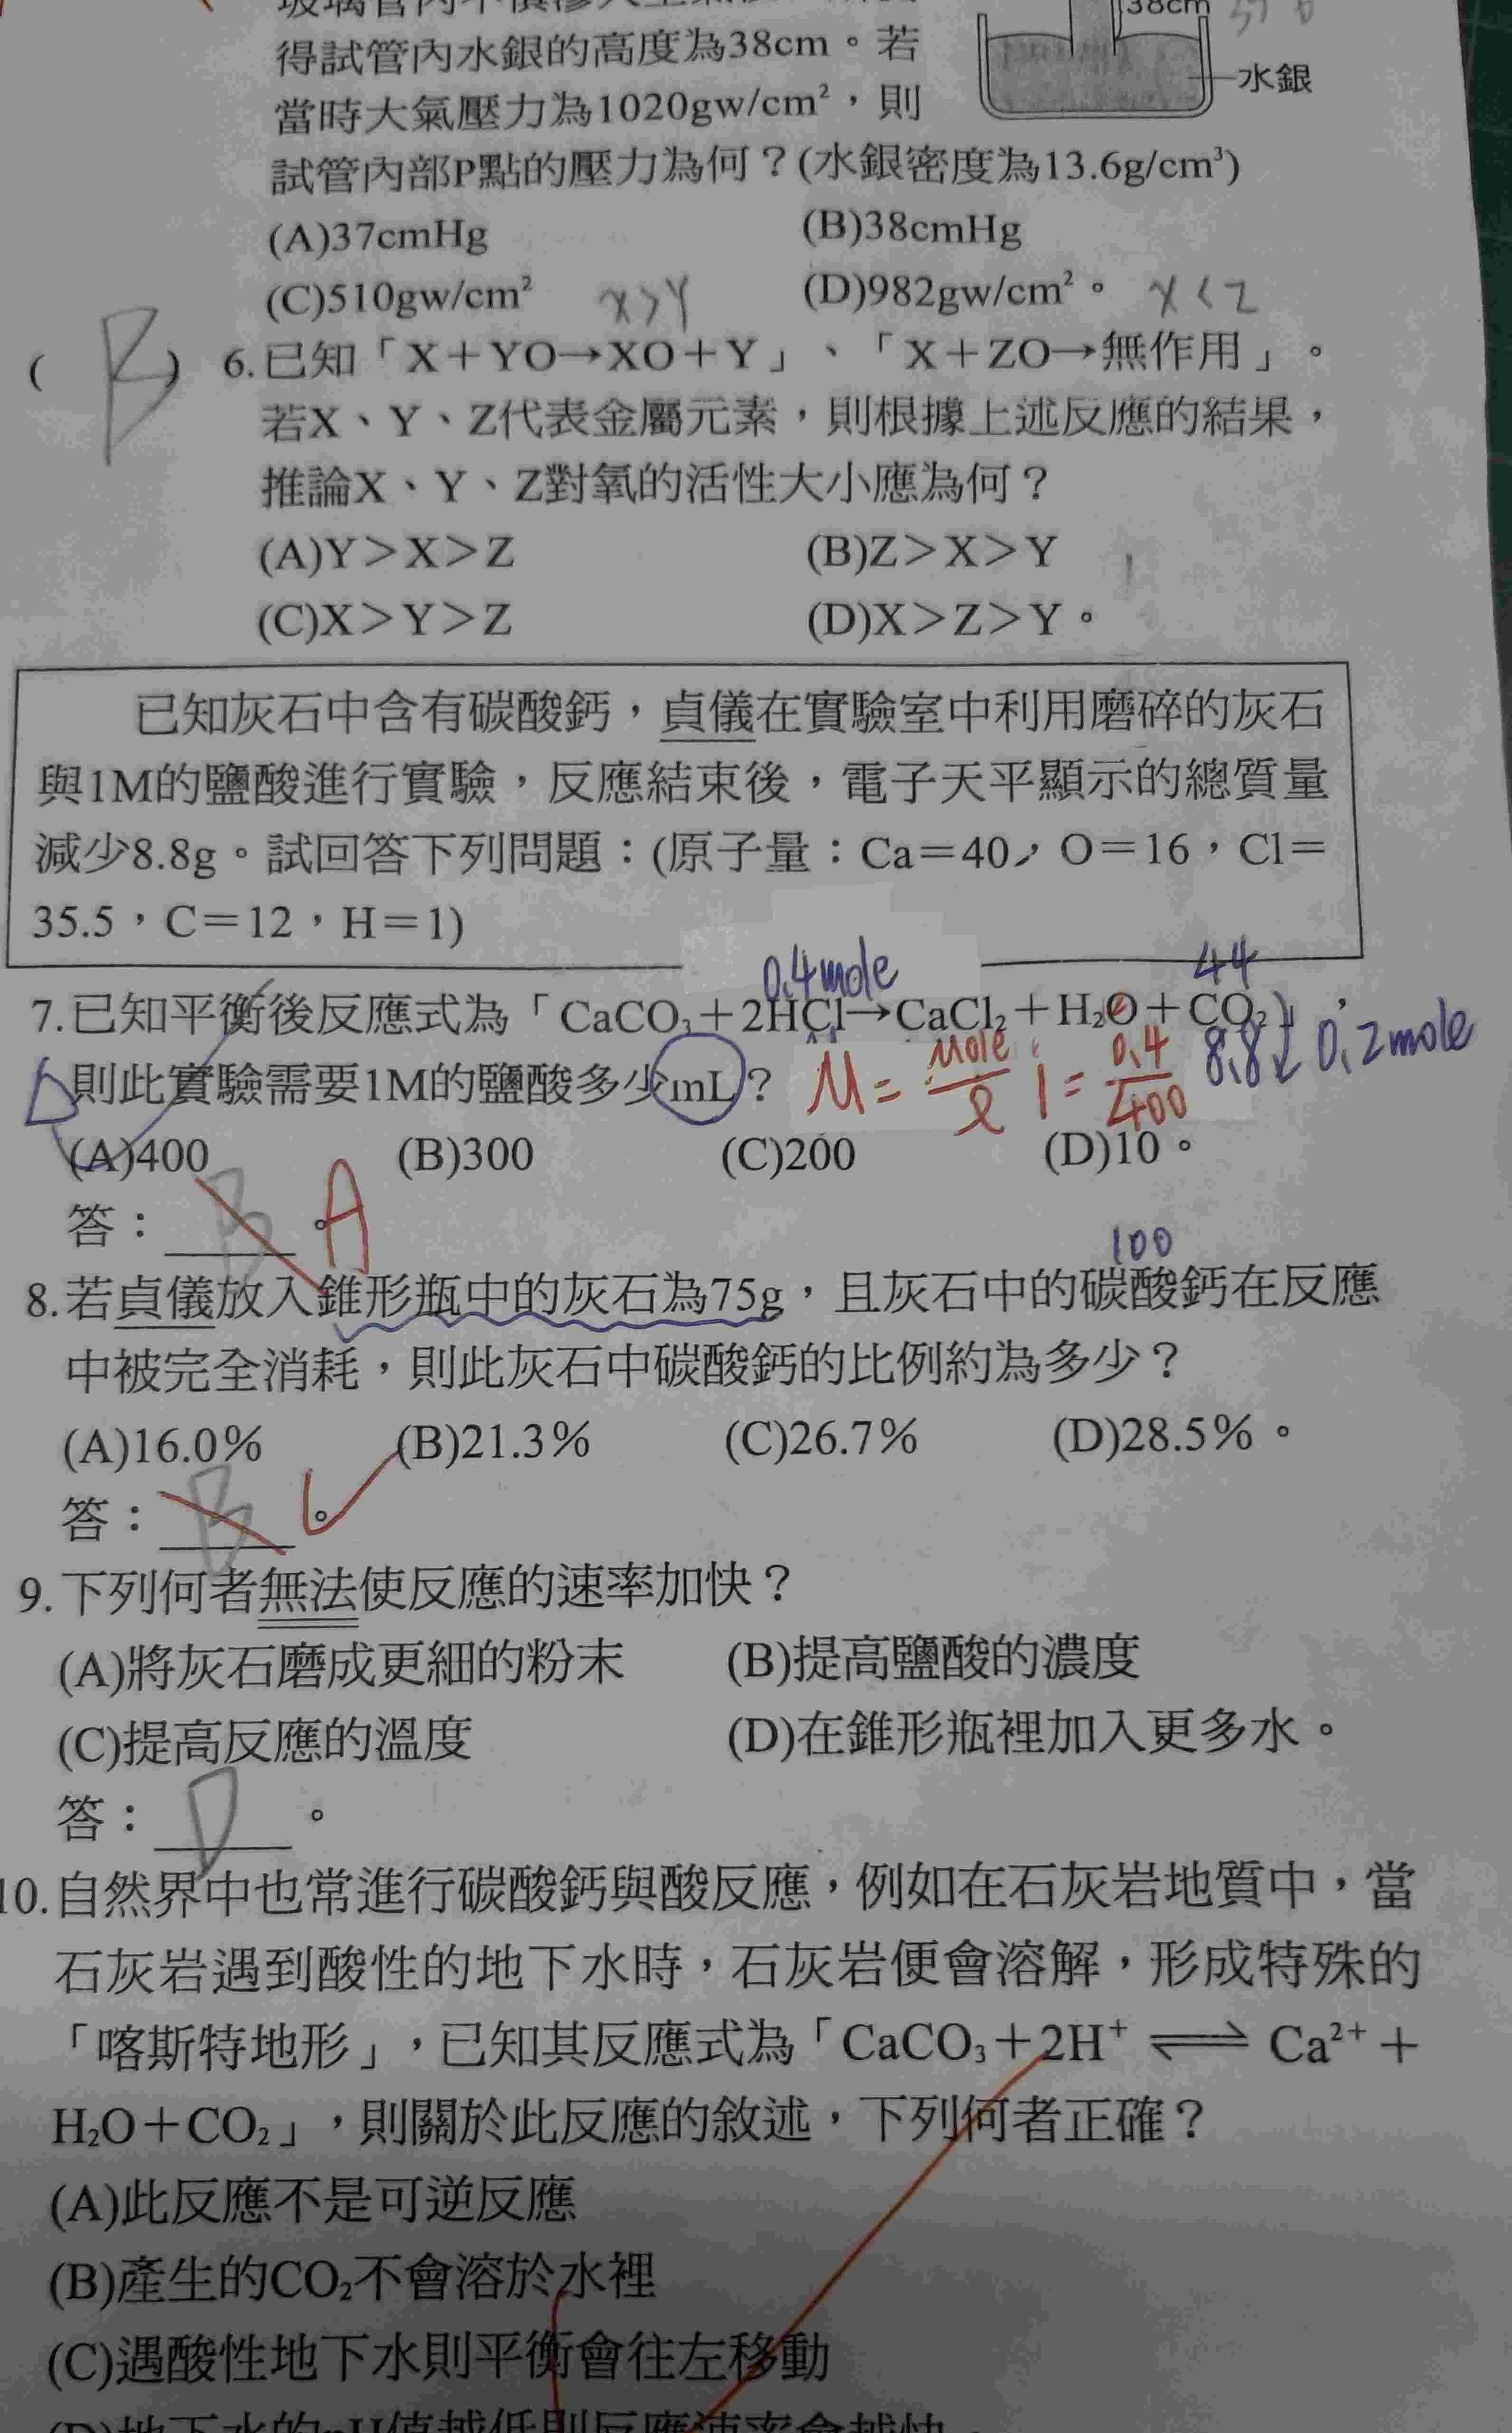 得試管內水銀的高度為38cm。若
38cm
當時大氣壓力為1020gw/cm²,則
水銀
試管內部P點的壓力為何?(水銀密度為13.6g/cm³)
(A)37cmHg (B)38cmHg
(C)510gw/cm² X>Y (D)982gw/cm²。 X<Z
( B ) 6.已知「X+YO→XO+Y」、「X+ZO→無作用」。
若X、Y、Z代表金屬元素,則根據上述反應的結果,
推論X、Y、Z對氧的活性大小應為何?
(A)Y>X>Z (B)Z>X>Y
(C)X>Y>Z (D)X>Z>Y。
已知灰石中含有碳酸鈣,貞儀在實驗室中利用磨碎的灰石
與1M的鹽酸進行實驗,反應結束後,電子天平顯示的總質量
減少8.8g。試回答下列問題:(原子量:Ca=40,O=16,Cl=
35.5,C=12,H=1)
0.4mole 44
7.已知平衡後反應式為「CaCO₃+2HCl→CaCl₂+H₂O+CO₂」,
則此實驗需要1M的鹽酸多少mL? M=mole/l 1=0.4/400 8.8↓ 0.2mole
(A)400 (B)300 (C)200 (D)10。
答:B。A
100
8.若貞儀放入錐形瓶中的灰石為75g,且灰石中的碳酸鈣在反應
中被完全消耗,則此灰石中碳酸鈣的比例約為多少?
(A)16.0% (B)21.3% (C)26.7% (D)28.5%。
答:B。
9.下列何者無法使反應的速率加快?
(A)將灰石磨成更細的粉末 (B)提高鹽酸的濃度
(C)提高反應的溫度 (D)在錐形瓶裡加入更多水。
答:D。
10.自然界中也常進行碳酸鈣與酸反應,例如在石灰岩地質中,當
石灰岩遇到酸性的地下水時,石灰岩便會溶解,形成特殊的
「喀斯特地形」,已知其反應式為「CaCO₃+2H⁺⇌Ca²⁺+
H₂O+CO₂」,則關於此反應的敘述,下列何者正確?
(A)此反應不是可逆反應
(B)產生的CO₂不會溶於水裡
(C)遇酸性地下水則平衡會往左移動
(D)地下水的pH值越低則反應速率會越快。